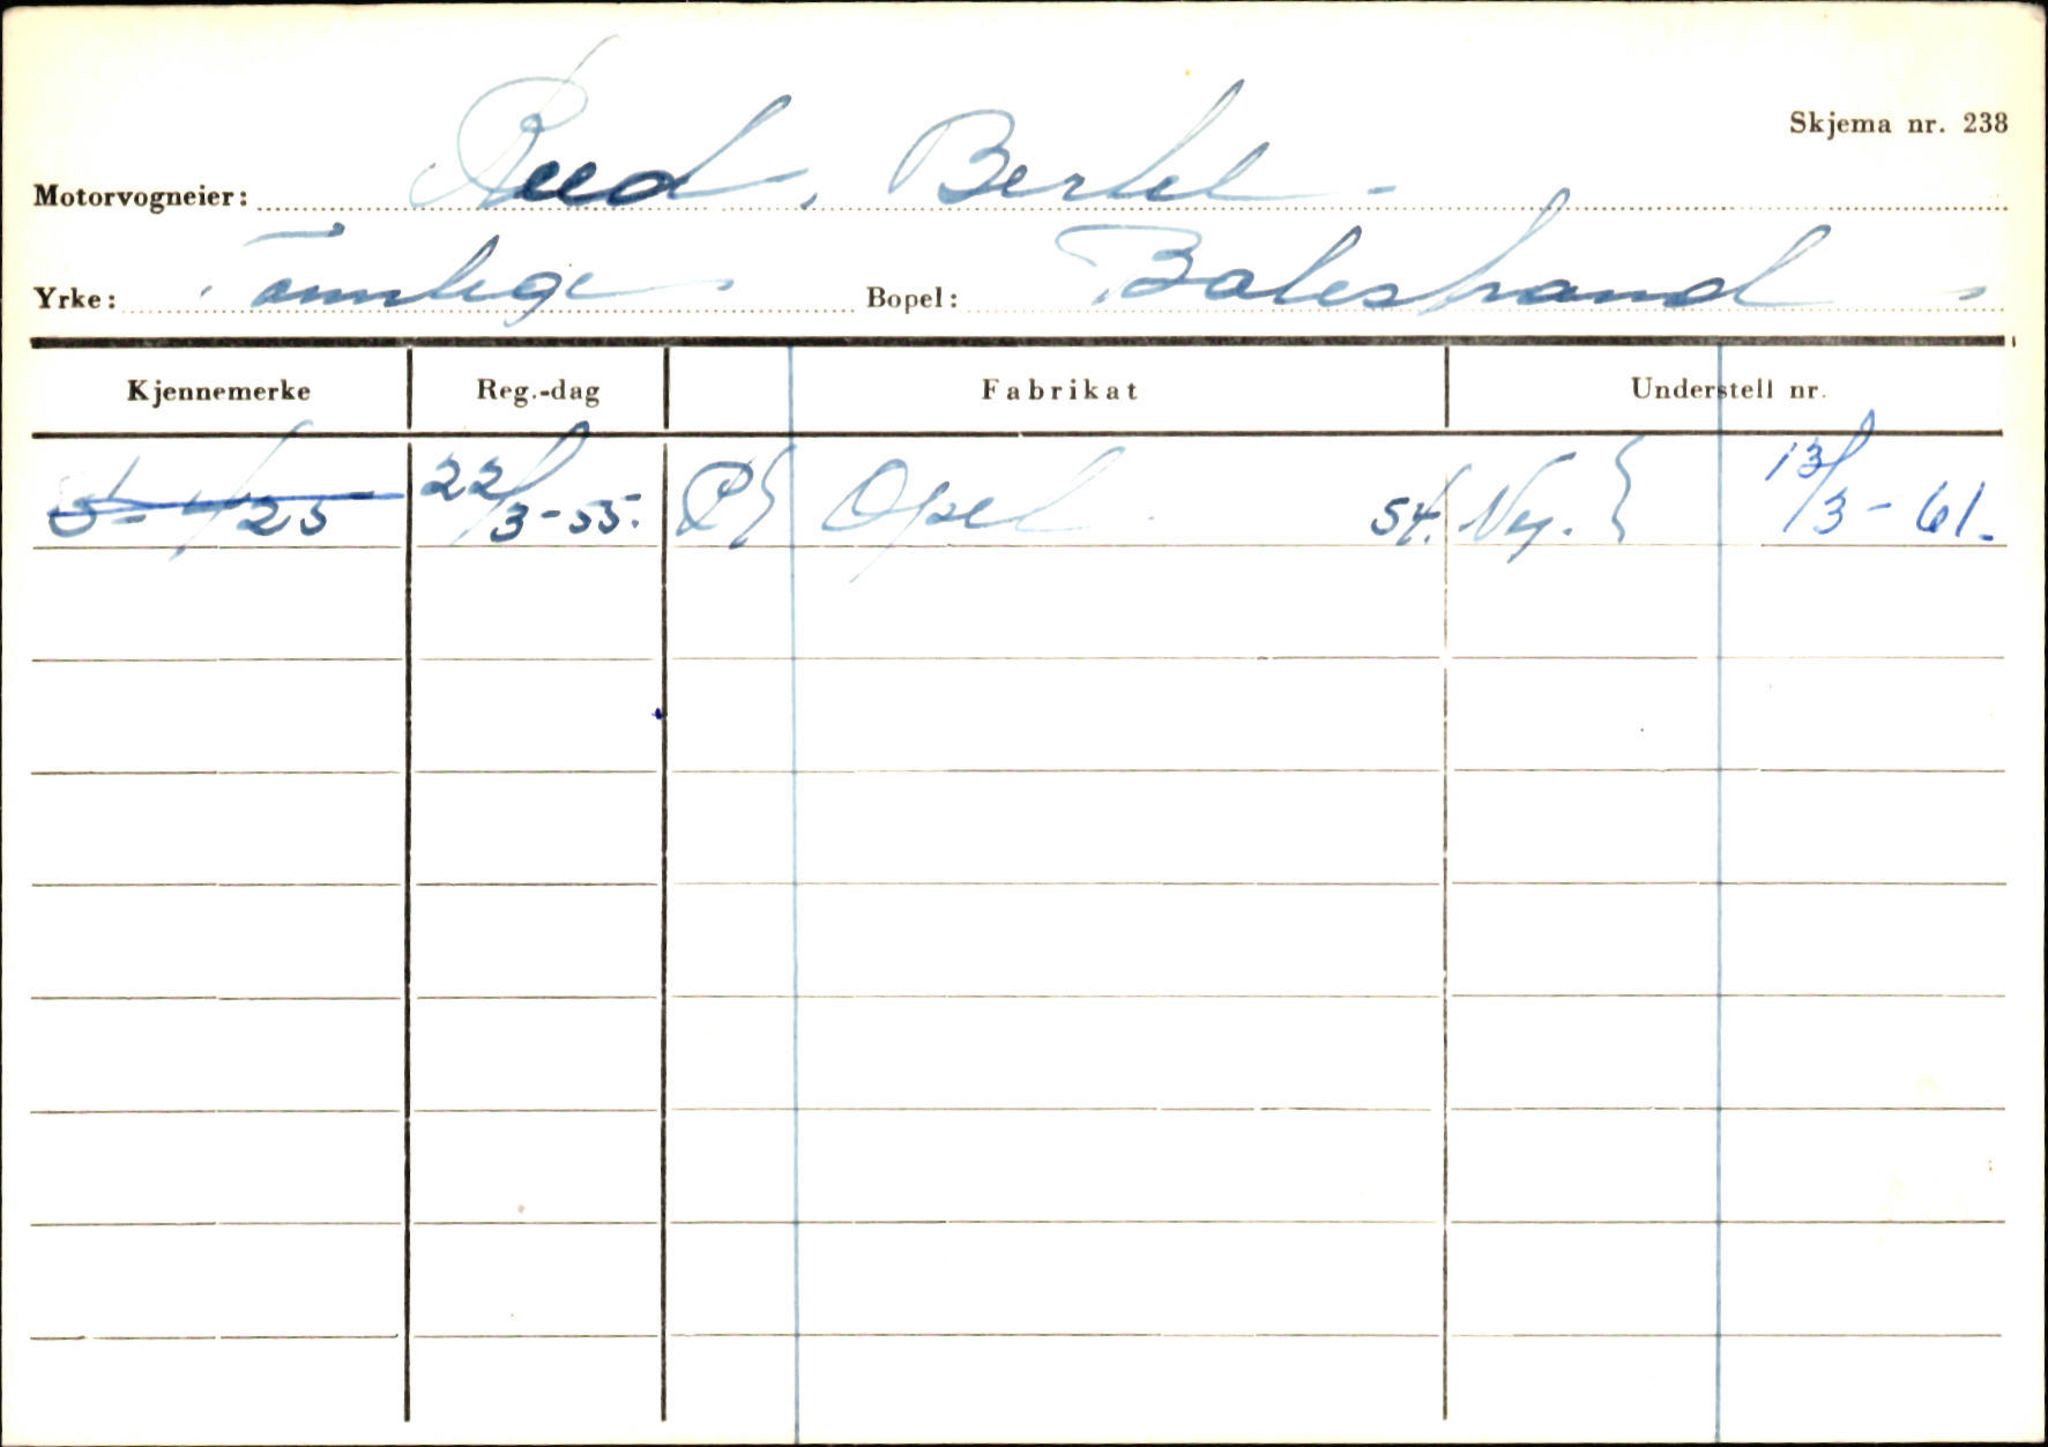 Skjema nr. 238
Motorvogneier: Rud, Bertel -
Yrke: Tannlege Bopel: Balestrand
Kjennemerke Reg.-dag Fabrikat Understell nr.
22/3-55. P} Opel 54. Ny. } 13/3-61.